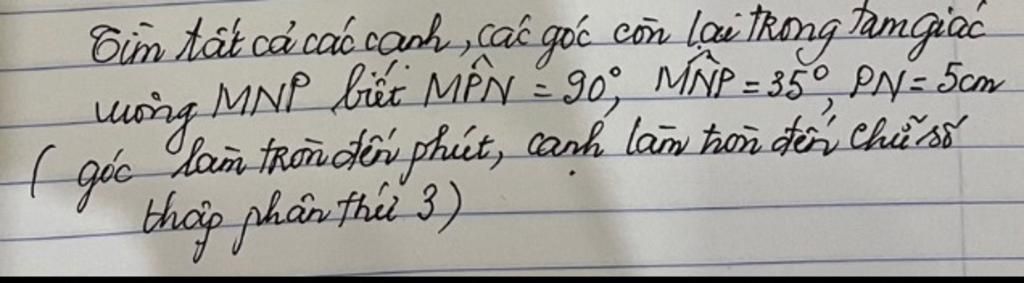 Tìm tất cả các cạnh, các góc còn lại trong tam giác
vuông MNP biết MP̂N = 90°, MN̂P = 35°, PN = 5cm
( góc làm tròn đến phút, cạnh làm tròn đến chữ số
thập phân thứ 3)